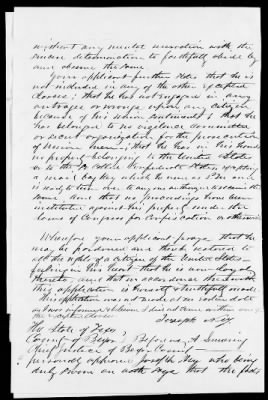 without any mental reservation with the
sincere determination to faithfully abide by
and observe the same.
Your applicant further states that he is
not included in any of the other excepted
classes; that he has not engaged in any
outrages or wrongs upon any citizen
because of his union sentiments; that he
has belonged to no vigilance committee
or secret organization for the persecution
of Union men; that he has in his hands
no property belonging to the United States
or to the so called Confederate States, excepting
a mare
is ready to turn over to any one authorized to receive the
same and that no proceedings have been
instituted against his property under the
laws of Congress for Confiscation or otherwise.
Wherefore your applicant prays that he
may be pardoned and thus restored to
all the rights of a citizen of the United States
This application is honestly & truthfully made
This application was not made at an earlier date
Joseph Ney
The State of Texas
County of Bexar Before me A Siemering
Chief Justice of Bexar County
personally appeared Joseph Ney who being
duly sworn on oath says that the facts